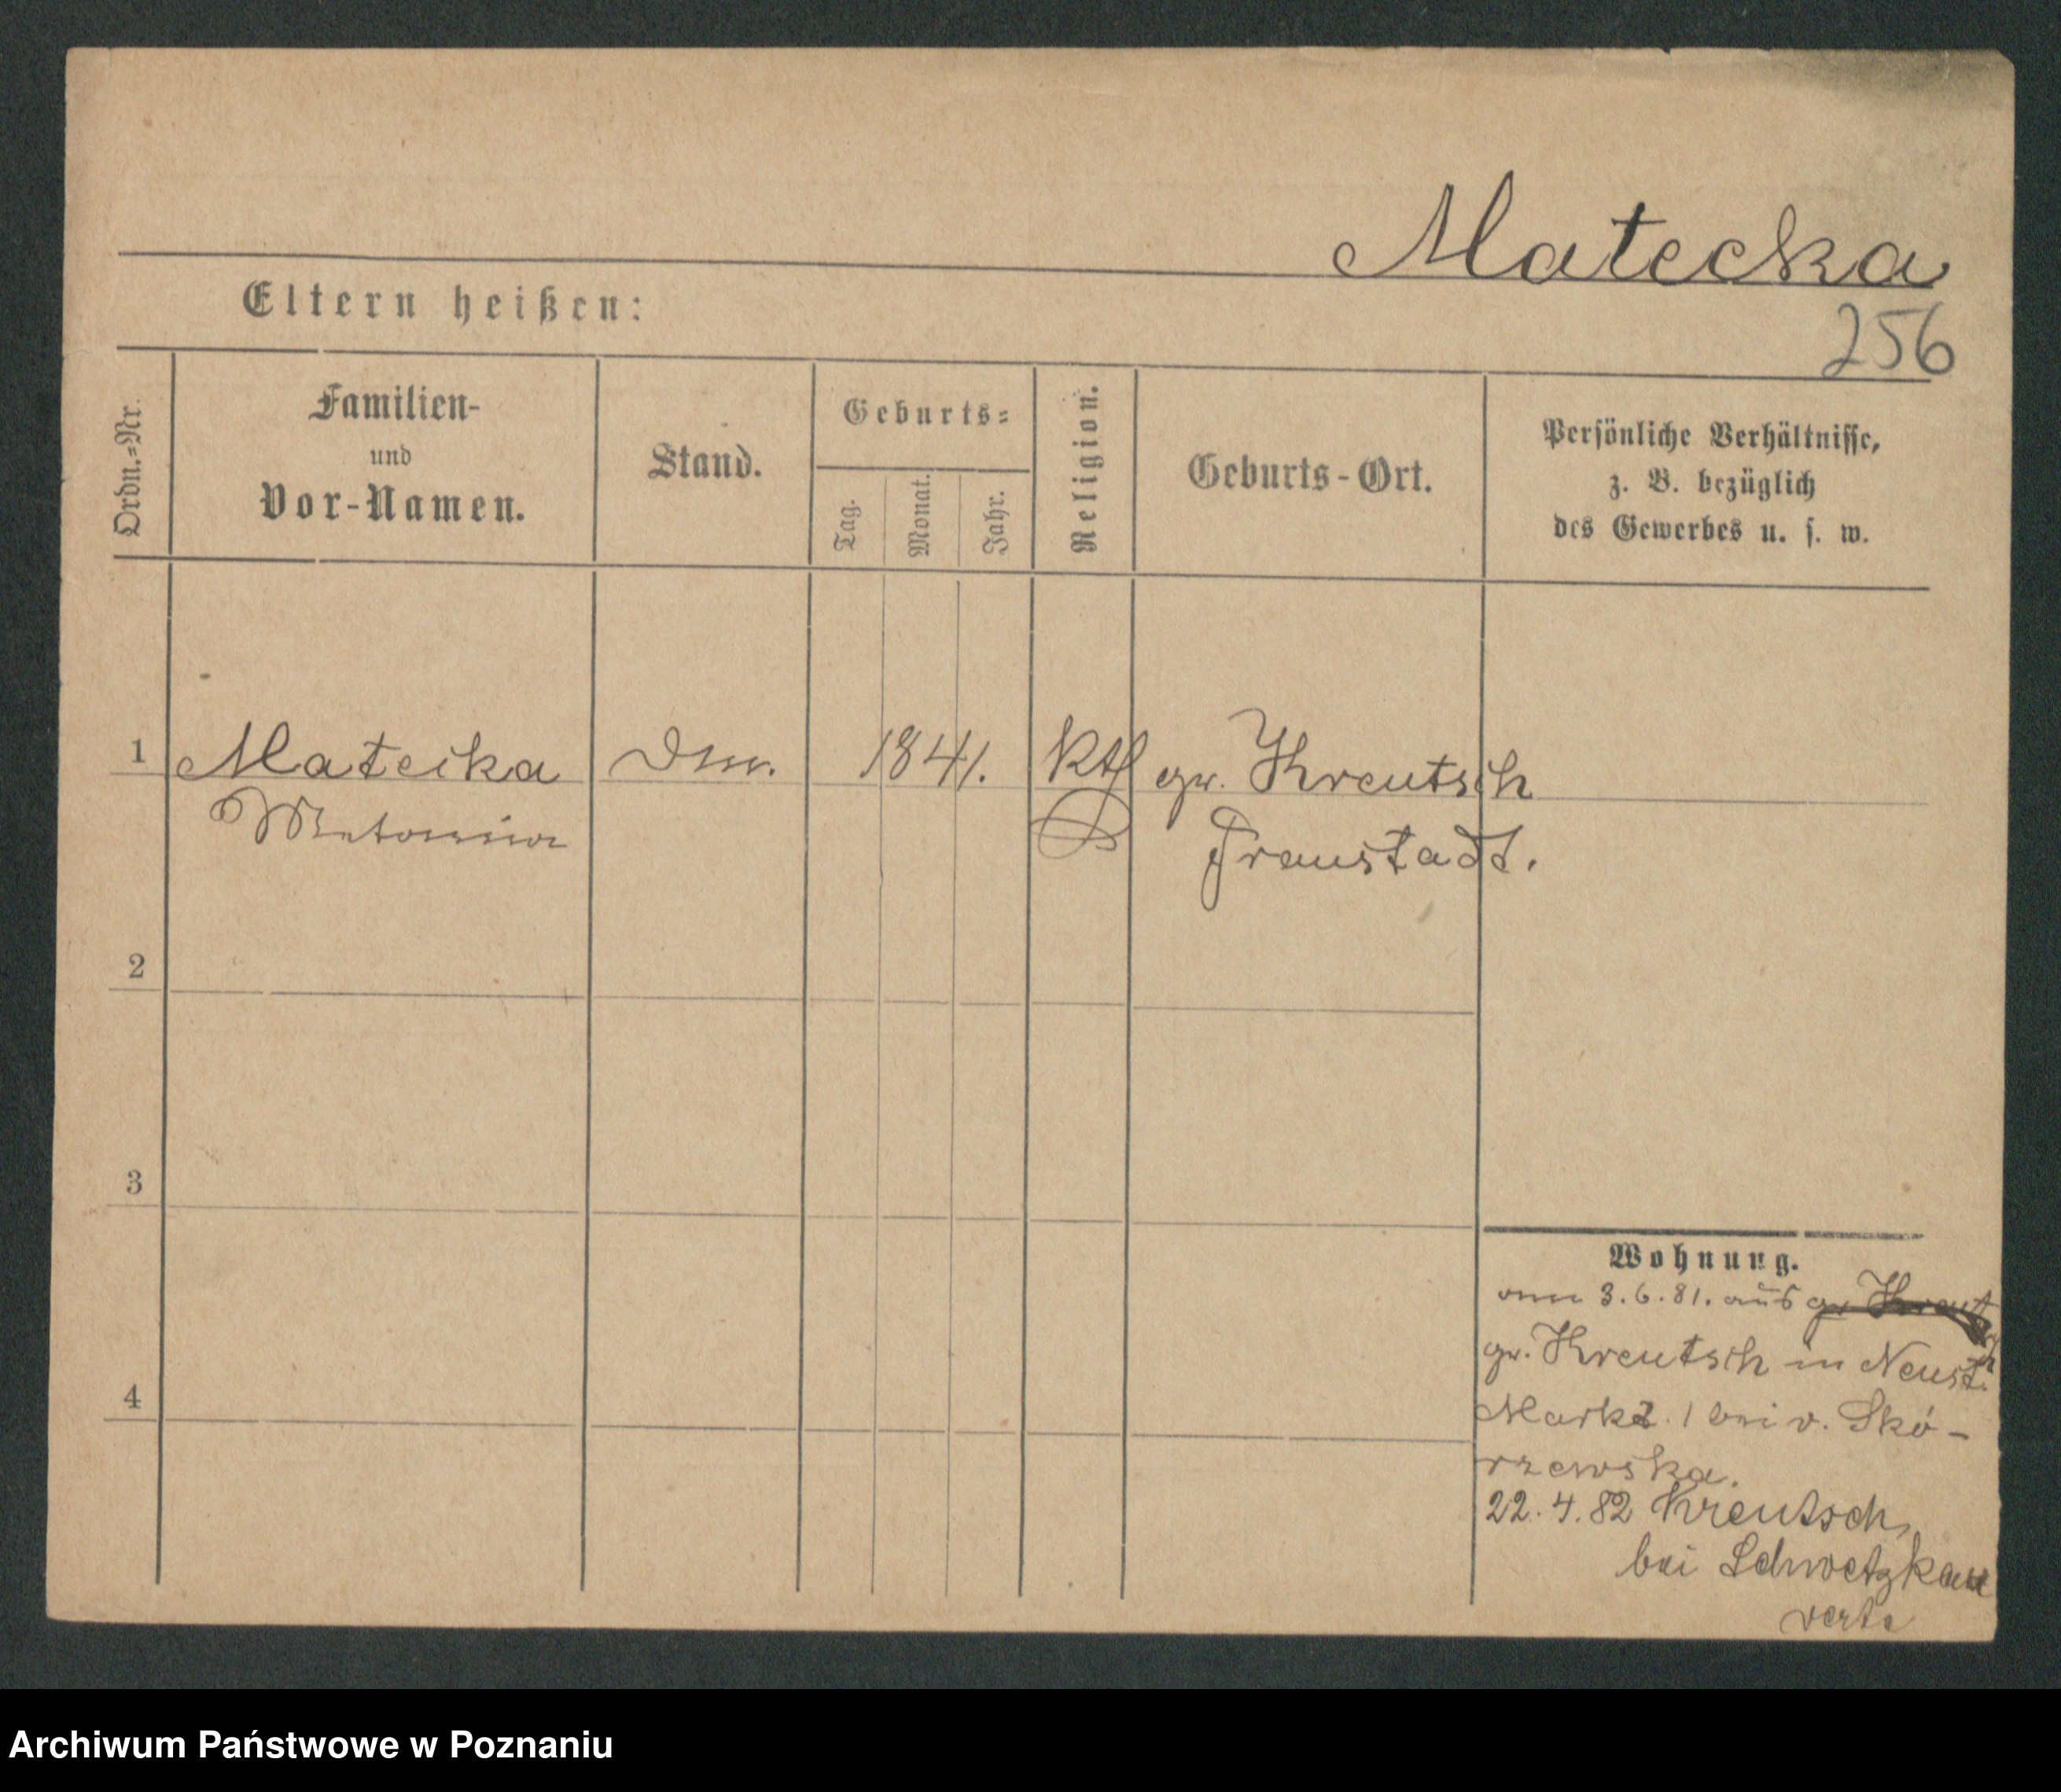 Matecka
Eltern heißen:
256
Ordn.=Nr.
Familien-
und
Vor-Namen.
Stand.
Geburts=
Tag.
Monat.
Jahr.
Religion.
Geburts-Ort.
Persönliche Verhältnisse,
z. B. bezüglich
des Gewerbes u. s. w.
1
Matecka
1841.
kth
gr. Kreutsch
Fraustadt.
2
3
4
Wohnung.
3.6.81. aus gr. Kreutsch
gr. Kreutsch in Neust.
Markt. 1 bei v. Skó-
rzewska.
22.4.82 Kreutsch,
bei Schwetzkau
verte
Archiwum Państwowe w Poznaniu